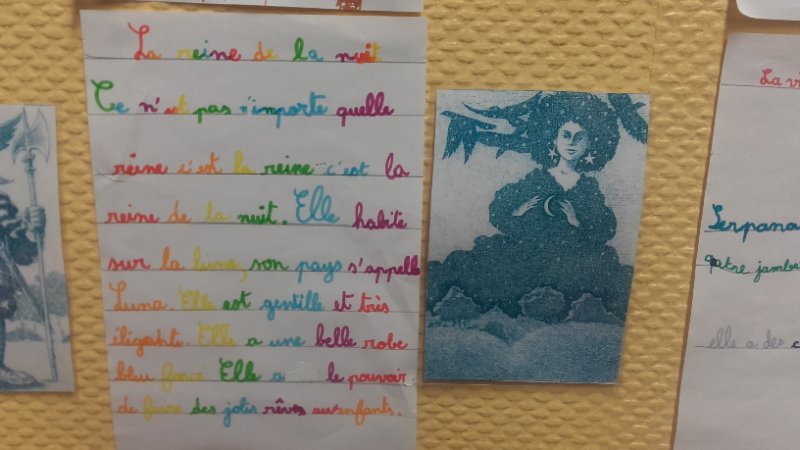 La reine de la nuit
Ce n'est pas n'importe quelle
reine c'est la reine c'est la
reine de la nuit. Elle habite
sur la lune, son pays s'appelle
Luna. Elle est gentille et très
éligante. Elle a une belle robe
bleu foncé Elle a le pouvoir
de faire des jolis rêves aux enfants.
La
Serpana
qatre jambe
elle a des